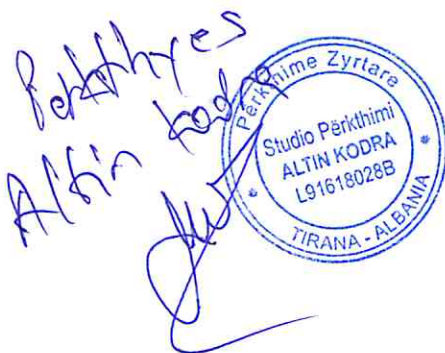 Përkthyes
Altin Kodra
Përkthime Zyrtare
Studio Përkthimi
ALTIN KODRA
L91618028B
TIRANA - ALBANIA